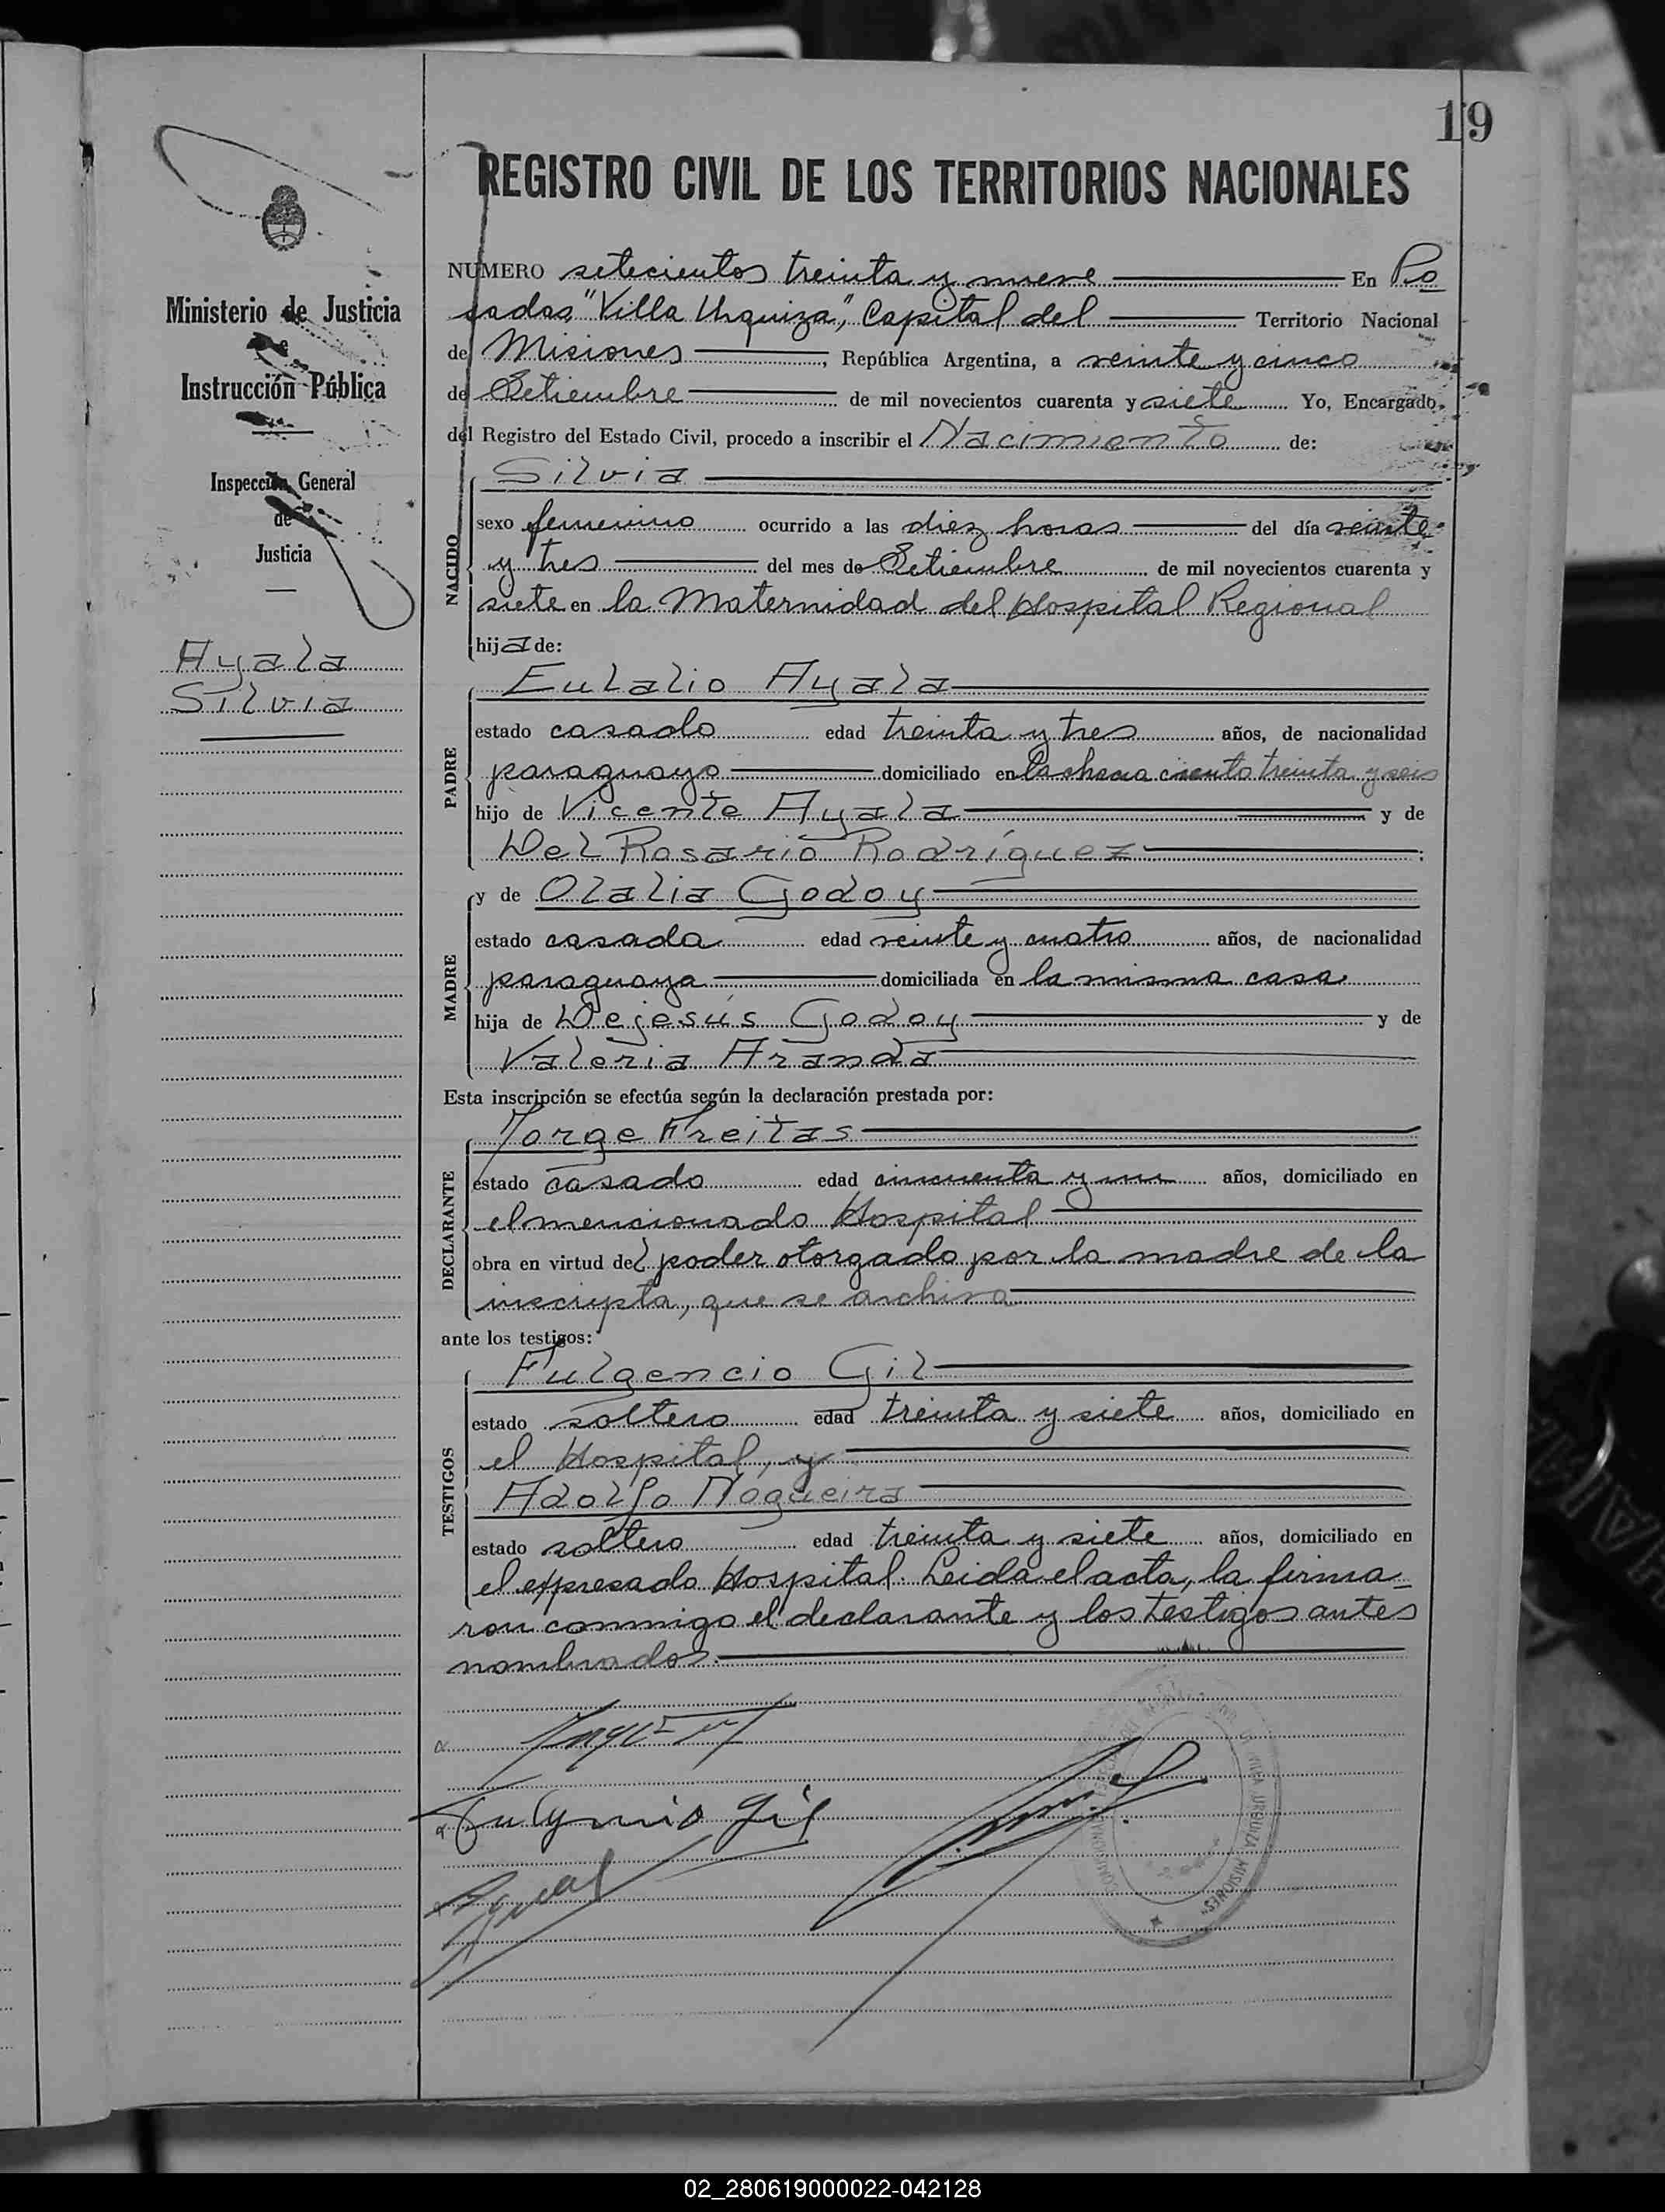 19
REGISTRO CIVIL DE LOS TERRITORIOS NACIONALES
Ministerio de Justicia
e
Instrucción Pública
Inspección General
de
Justicia
Ayala
Silvia
NUMERO setecientos treinta y nueve En Po
sadas "Villa Urquiza", Capital del Territorio Nacional
de Misiones, República Argentina, a veinte y cinco
de Setiembre de mil novecientos cuarenta y siete Yo, Encargado
del Registro del Estado Civil, procedo a inscribir el Nacimiento de:
NACIDO
Silvia
sexo femenino ocurrido a las diez horas del día veinte
y tres del mes de Setiembre de mil novecientos cuarenta y
siete en la Maternidad del Hospital Regional
hija de:
PADRE
Eulalio Ayala
estado casado edad treinta y tres años, de nacionalidad
paraguayo domiciliado en la chacra ciento treinta y seis
hijo de Vicente Ayala y de
Del Rosario Rodríguez;
MADRE
y de Olalia Godoy
estado casada edad veinte y cuatro años, de nacionalidad
paraguaya domiciliada en la misma casa
hija de Dejesús Godoy y de
Valeria Aranda
Esta inscripción se efectúa según la declaración prestada por:
DECLARANTE
Jorge Freitas
estado casado edad cincuenta y un años, domiciliado en
el mencionado Hospital
obra en virtud del poder otorgado por la madre de la
inscripta, que se archiva
ante los testigos:
TESTIGOS
Fulgencio Gil
estado soltero edad treinta y siete años, domiciliado en
el Hospital, y
Adolfo Nogueira
estado soltero edad treinta y siete años, domiciliado en
el expresado Hospital. Leida el acta, la firma_
ron conmigo el declarante y los testigos antes
nombrados.
Fulgencio Gil
VILLA URQUIZA MISIONES
02_280619000022-042128